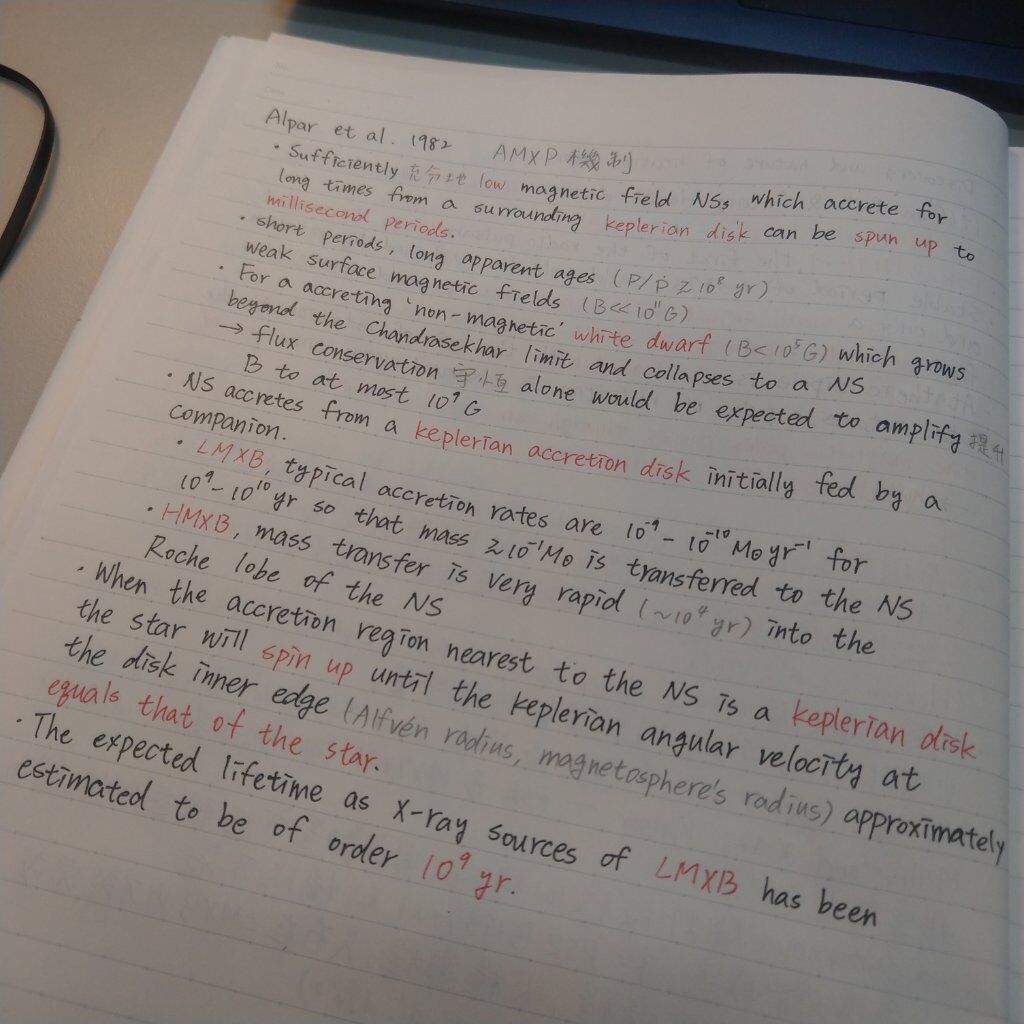 Alpar et al. 1982 AMXP 機制
• Sufficiently 充分地 low magnetic field NSs which accrete for
long times from a surrounding keplerian disk can be spun up to
millisecond periods.
• short periods, long apparent ages (P/Ṗ ≳ 10⁸ yr)
weak surface magnetic fields (B<<10¹¹G)
• For a accreting 'non-magnetic' white dwarf (B<10⁵G) which grows
beyond the Chandrasekhar limit and collapses to a NS
→ flux conservation 守恆 alone would be expected to amplify 提升
B to at most 10⁹ G
• NS accretes from a keplerian accretion disk initially fed by a
companion.
• LMXB, typical accretion rates are 10⁻⁹ - 10⁻¹⁰ M⊙ yr⁻¹ for
10⁹ - 10¹⁰ yr so that mass ≳ 10⁻¹ M⊙ is transferred to the NS
• HMXB, mass transfer is very rapid (~10⁴ yr) into the
Roche lobe of the NS
• When the accretion region nearest to the NS is a keplerian disk
the star will spin up until the keplerian angular velocity at
the disk inner edge (Alfvén radius, magnetosphere's radius) approximately
equals that of the star.
• The expected lifetime as X-ray sources of LMXB has been
estimated to be of order 10⁹ yr.